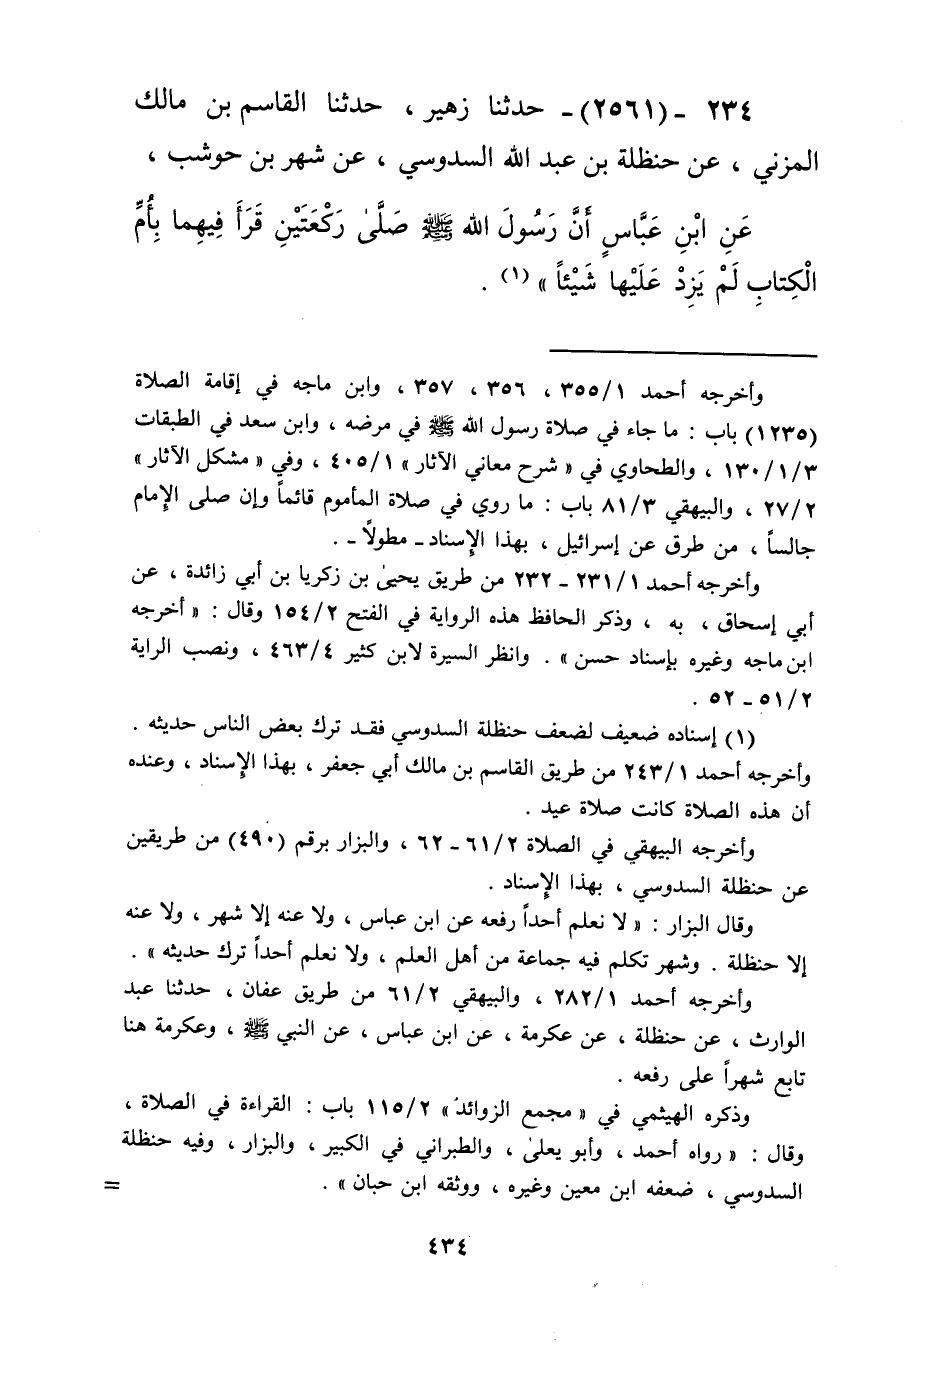 ٢٣٤ - (٢٥٦١) - حدثنا زهير ، حدثنا القاسم بن مالك
المزني ، عن حنظلة بن عبد الله السدوسي ، عن شهر بن حوشب ،
عَنِ ابْنِ عَبَّاسٍ أَنَّ رَسُولَ الله ﷺ صَلَّىٰ رَكْعَتَيْنِ قَرَأَ فِيهِما بِأُمِّ
الْكِتابِ لَمْ يَزِدْ عَلَيْها شَيْئاً » (١) .
وأخرجه أحمد ٣٥٥/١ ، ٣٥٦ ، ٣٥٧ ، وابن ماجه في إقامة الصلاة
(١٢٣٥) باب : ما جاء في صلاة رسول الله ﷺ في مرضه ، وابن سعد في الطبقات
١٣٠/١/٣ ، والطحاوي في « شرح معاني الآثار » ٤٠٥/١ ، وفي « مشكل الآثار »
٢٧/٢ ، والبيهقي ٨١/٣ باب : ما روي في صلاة المأموم قائماً وإن صلى الإمام
جالساً ، من طرق عن إسرائيل ، بهذا الإسناد - مطولاً - .
وأخرجه أحمد ٢٣١/١ - ٢٣٢ من طريق يحيىٰ بن زكريا بن أبي زائدة ، عن
أبي إسحاق ، به ، وذكر الحافظ هذه الرواية في الفتح ١٥٤/٢ وقال : « أخرجه
ابن ماجه وغيره بإسناد حسن » . وانظر السيرة لابن كثير ٤٦٣/٤ ، ونصب الراية
٥١/٢ - ٥٢ .
(١) إسناده ضعيف لضعف حنظلة السدوسي فقد ترك بعض الناس حديثه .
وأخرجه أحمد ٢٤٣/١ من طريق القاسم بن مالك أبي جعفر ، بهذا الإسناد ، وعنده
أن هذه الصلاة كانت صلاة عيد .
وأخرجه البيهقي في الصلاة ٦١/٢ - ٦٢ ، والبزار برقم (٤٩٠) من طريقين
عن حنظلة السدوسي ، بهذا الإسناد .
وقال البزار : « لا نعلم أحداً رفعه عن ابن عباس ، ولا عنه إلا شهر ، ولا عنه
إلا حنظلة . وشهر تكلم فيه جماعة من أهل العلم ، ولا نعلم أحداً ترك حديثه » .
وأخرجه أحمد ٢٨٢/١ ، والبيهقي ٦١/٢ من طريق عفان ، حدثنا عبد
الوارث ، عن حنظلة ، عن عكرمة ، عن ابن عباس ، عن النبي ﷺ ، وعكرمة هنا
تابع شهراً على رفعه .
وذكره الهيثمي في « مجمع الزوائد » ١١٥/٢ باب : القراءة في الصلاة ،
وقال : « رواه أحمد ، وأبو يعلىٰ ، والطبراني في الكبير ، والبزار ، وفيه حنظلة
السدوسي ، ضعفه ابن معين وغيره ، ووثقه ابن حبان » . =
٤٣٤